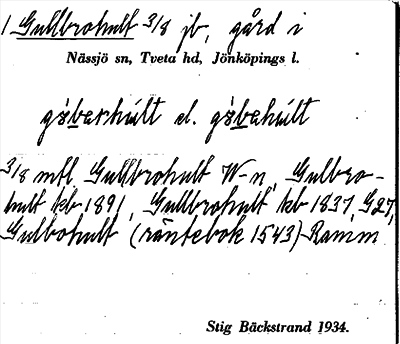 1 Gullbrohult 3/8 jb, gård i
Nässjö sn, Tveta hd, Jönköpings l.
gɜ̀barhúlt el. gɜ̀bahúlt
3/8 mtl Gullbrohult W-n, Gulbro-
hult kb 1891, Gullbrohult kb 1837, G27,
Gulbohult (räntebok 1543) Ramm
Stig Bäckstrand 1934.